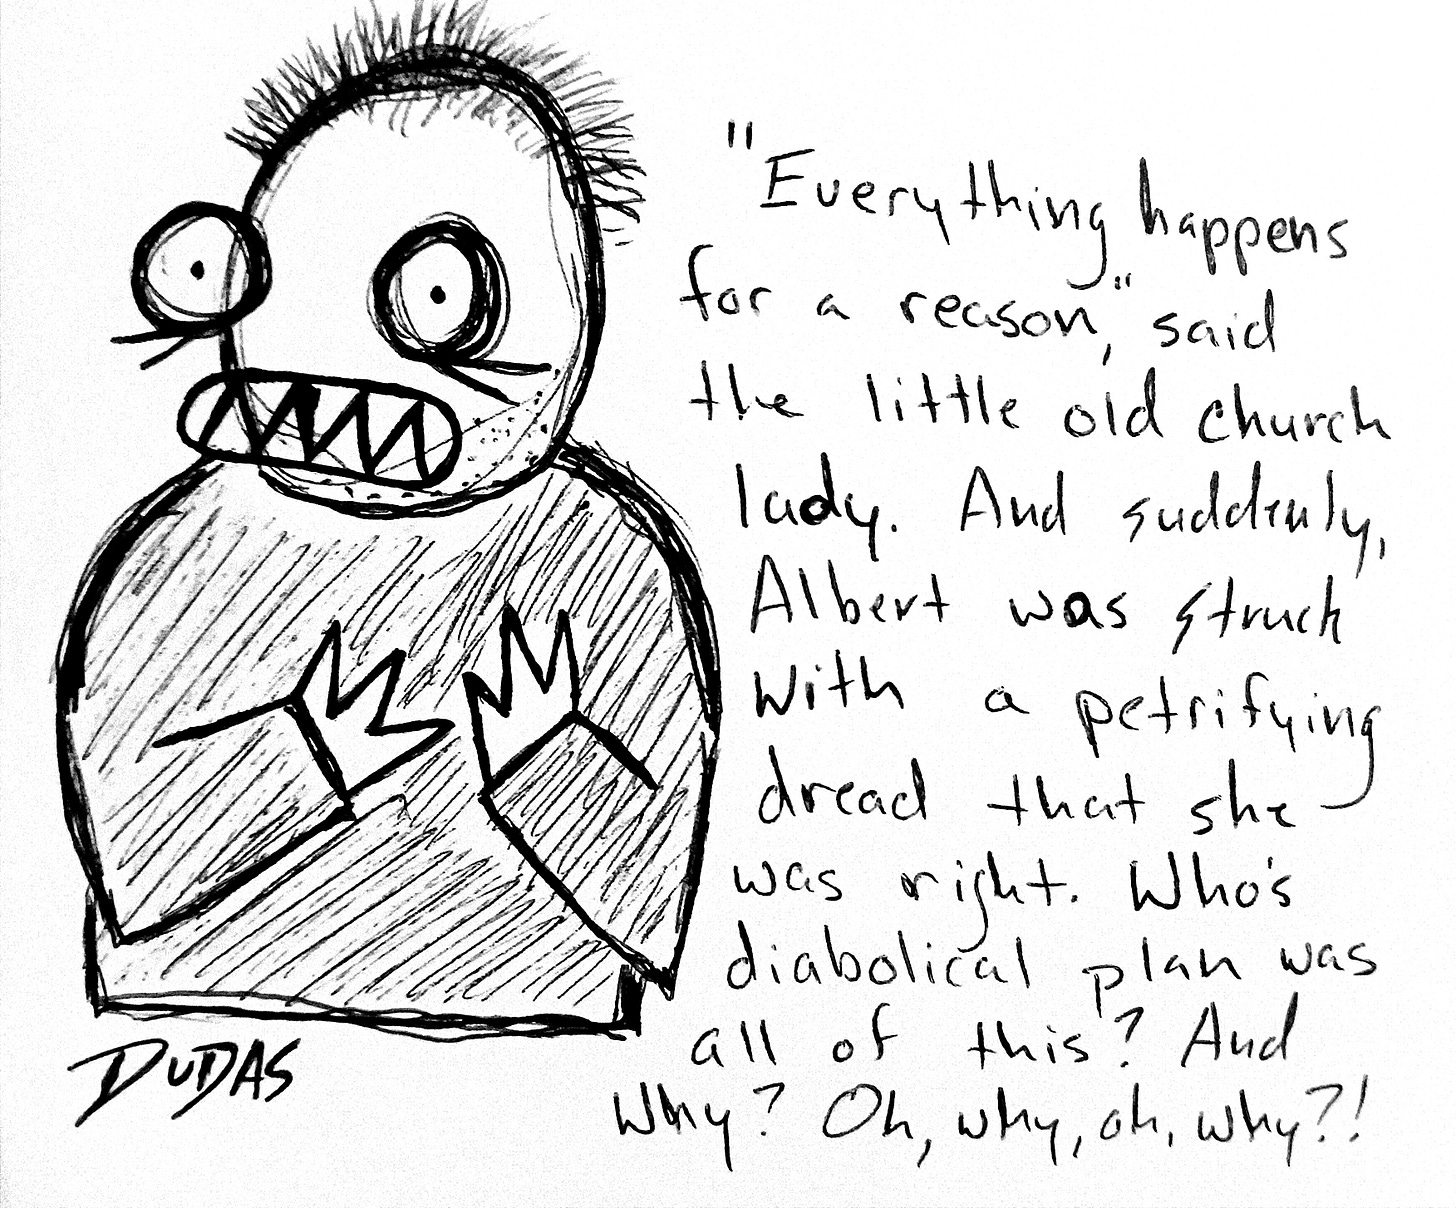 "Everything happens
for a reason," said
the little old church
lady. And suddenly,
Albert was struck
with a petrifying
dread that she
was right. Who's
diabolical plan was
all of this? And
Why? Oh, why, oh, why?!
DUDAS